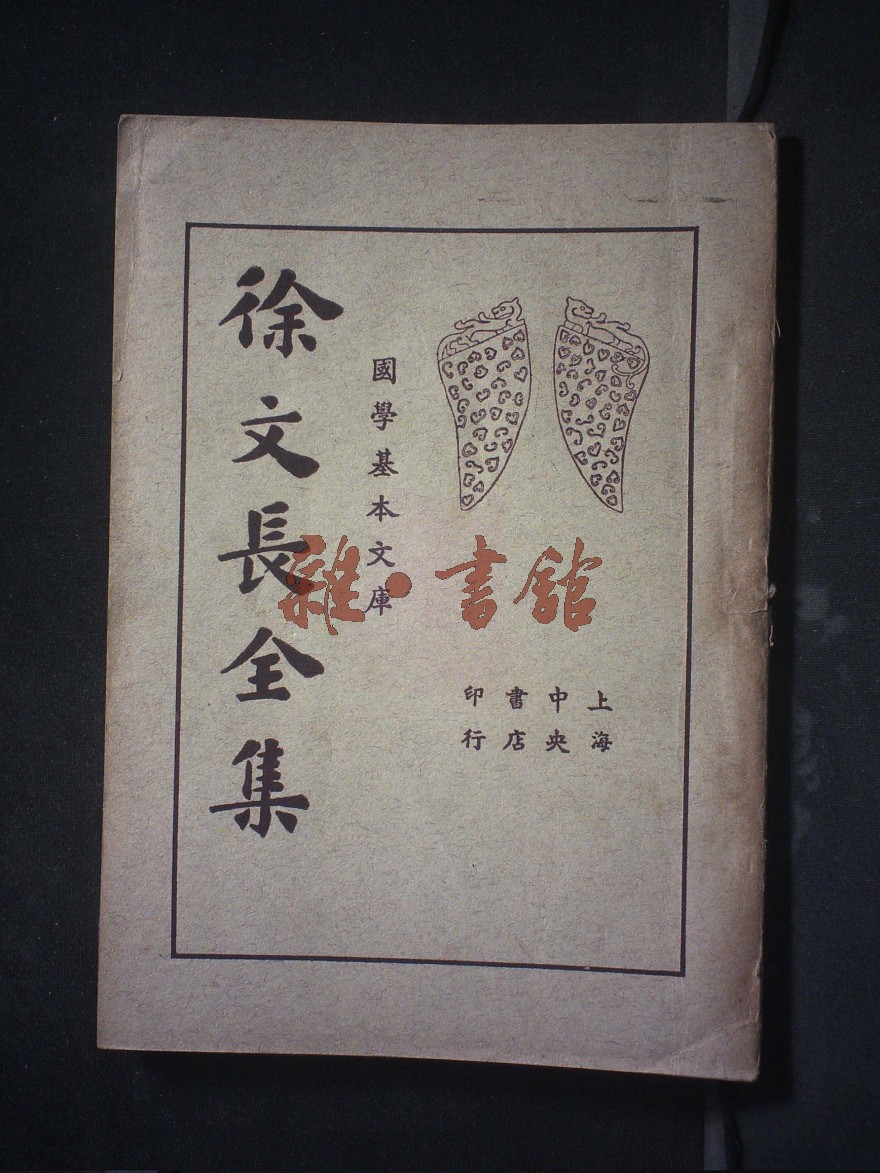 徐文長全集
國學基本文庫
雜·書館
上海
中央
書店
印行